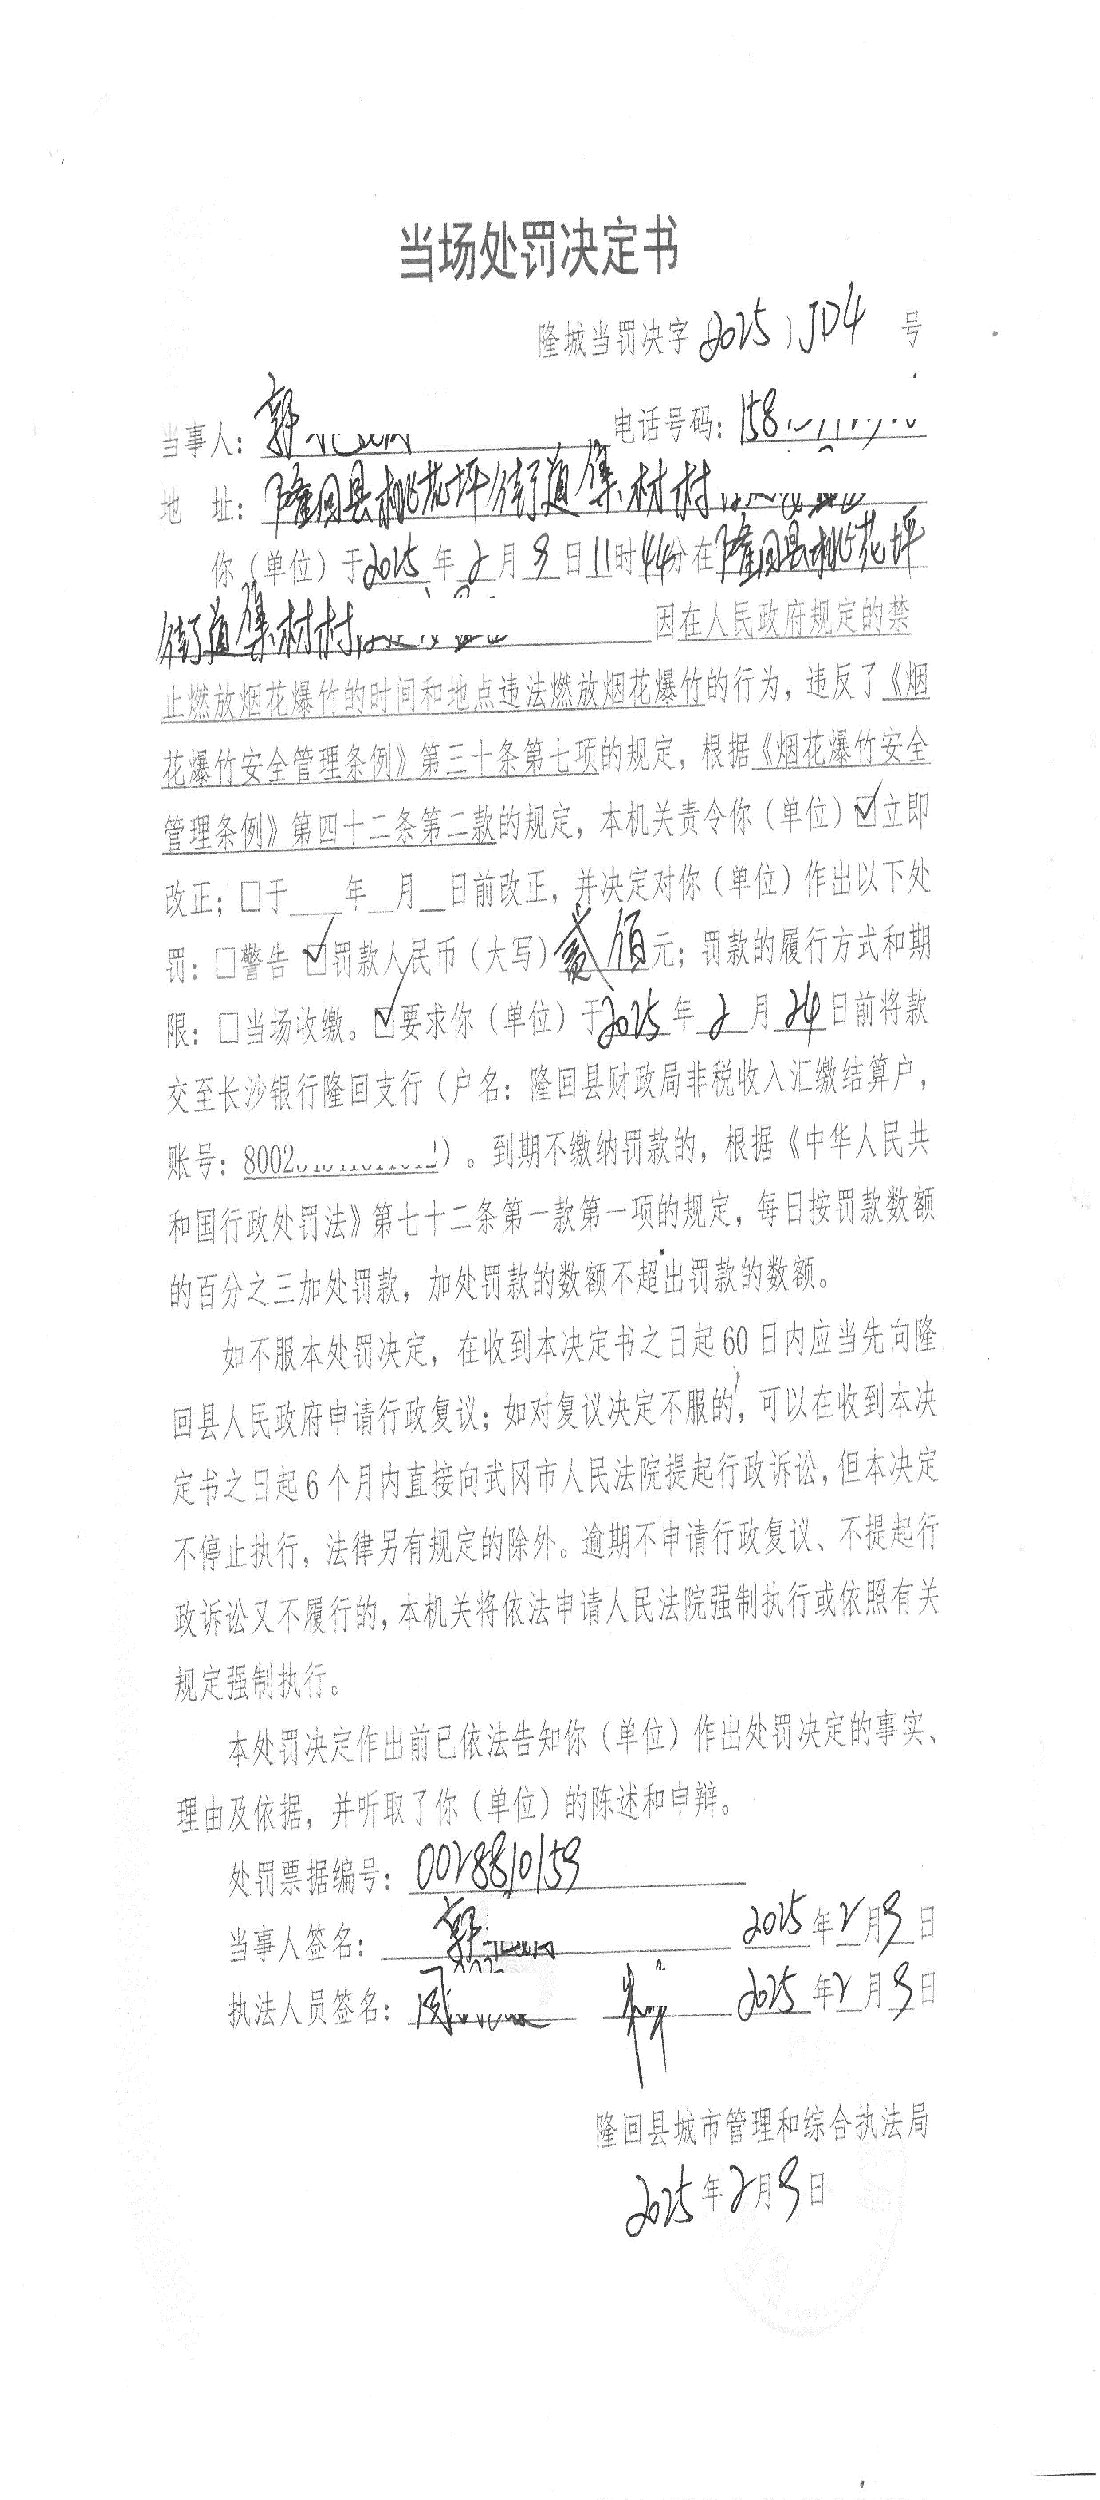 当场处罚决定书
隆城当罚决字(2025)JD4 号
当事人：郭 电话号码：158
地 址：隆回县桃花坪街道集材村
你（单位）于2025年2月9日11时44分在隆回县桃花坪
街道集材村 因在人民政府规定的禁
止燃放烟花爆竹的时间和地点违法燃放烟花爆竹的行为，违反了《烟
花爆竹安全管理条例》第三十条第七项的规定，根据《烟花爆竹安全
管理条例》第四十二条第二款的规定，本机关责令你（单位）☑立即
改正；□于___年__月__日前改正，并决定对你（单位）作出以下处
罚：□警告 ☑罚款人民币（大写）贰佰元；罚款的履行方式和期
限：□当场收缴。☑要求你（单位）于2025年2月24日前将款
交至长沙银行隆回支行（户名：隆回县财政局非税收入汇缴结算户，
账号：8002）。到期不缴纳罚款的，根据《中华人民共
和国行政处罚法》第七十二条第一款第一项的规定，每日按罚款数额
的百分之三加处罚款，加处罚款的数额不超出罚款的数额。
如不服本处罚决定，在收到本决定书之日起60日内应当先向隆
回县人民政府申请行政复议；如对复议决定不服的，可以在收到本决
定书之日起6个月内直接向武冈市人民法院提起行政诉讼，但本决定
不停止执行，法律另有规定的除外。逾期不申请行政复议、不提起行
政诉讼又不履行的，本机关将依法申请人民法院强制执行或依照有关
规定强制执行。
本处罚决定作出前已依法告知你（单位）作出处罚决定的事实、
理由及依据，并听取了你（单位）的陈述和申辩。
处罚票据编号：0028810159
当事人签名：郭 2025年2月9日
执法人员签名：周 2025年2月9日
隆回县城市管理和综合执法局
2025年2月9日